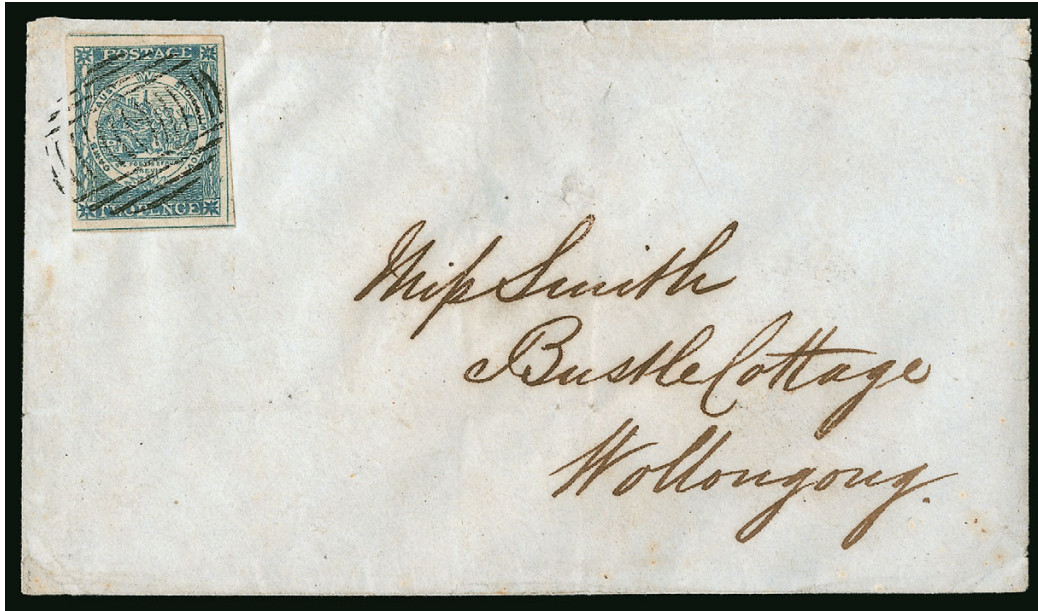 POSTAGE
TWOPENCE
Miſs Smith
Bustle Cottage
Wollongong.